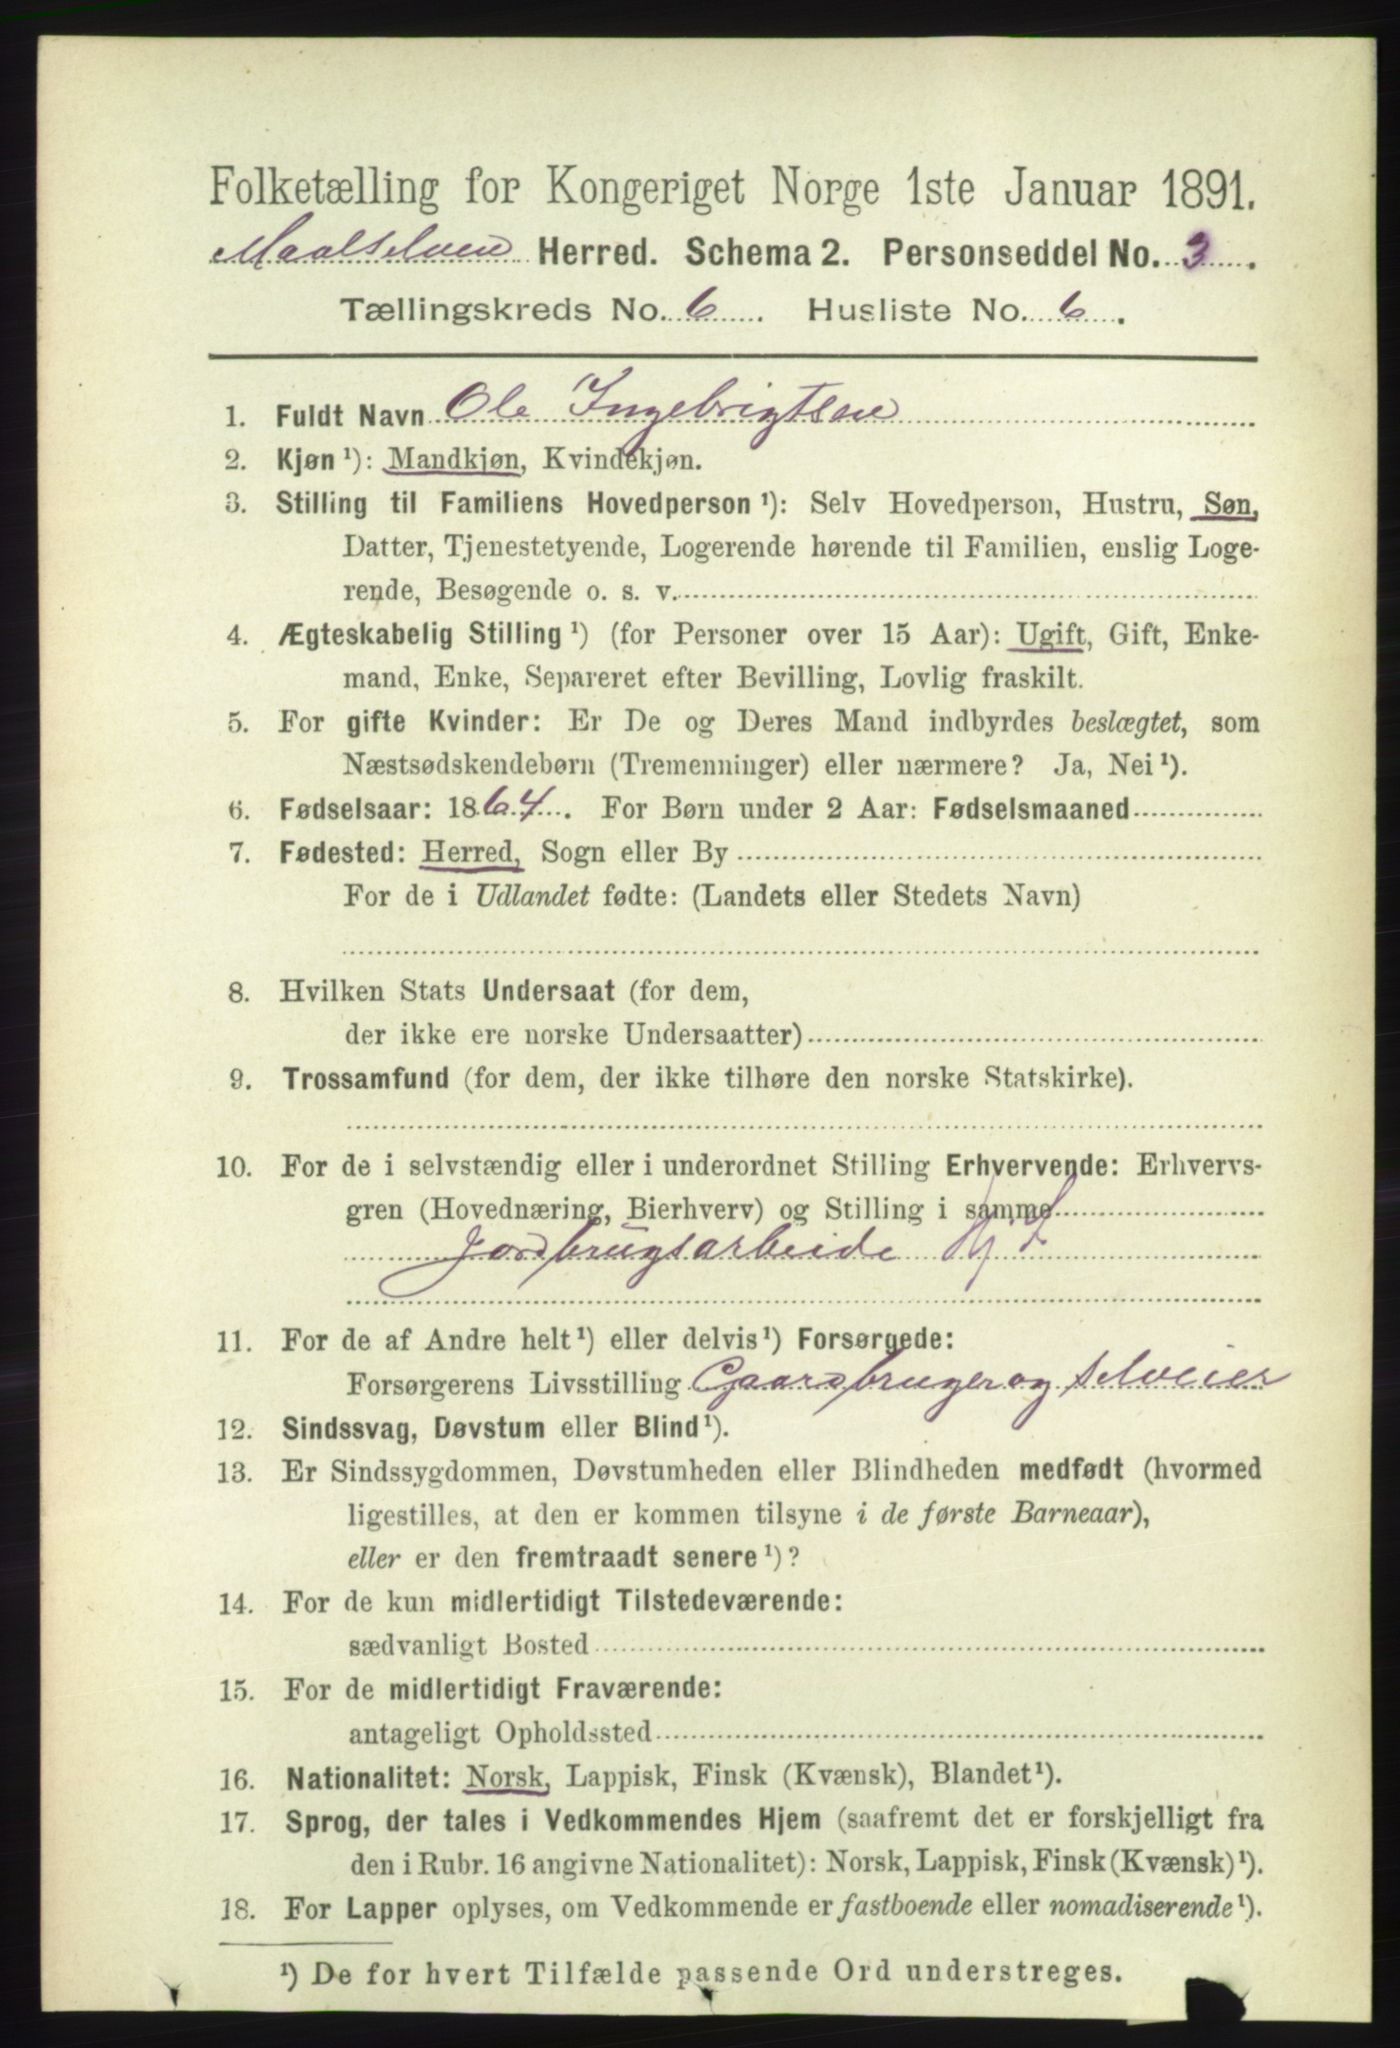 Folketælling for Kongeriget Norge 1ste Januar 1891.
Maalselven Herred. Schema 2. Personseddel No. 3.
Tællingskreds No. 6. Husliste No. 6.
1. Fuldt Navn Ole Ingebrigtsen
2. Kjøn ¹): Mandkjøn, Kvindekjøn.
3. Stilling til Familiens Hovedperson ¹): Selv Hovedperson, Hustru, Søn,
Datter, Tjenestetyende, Logerende hørende til Familien, enslig Loge-
rende, Besøgende o. s. v.
4. Ægteskabelig Stilling ¹) (for Personer over 15 Aar): Ugift, Gift, Enke-
mand, Enke, Separeret efter Bevilling, Lovlig fraskilt.
5. For gifte Kvinder: Er De og Deres Mand indbyrdes beslægtet, som
Næstsødskendebørn (Tremenninger) eller nærmere? Ja, Nei ¹).
6. Fødselsaar: 1864. For Børn under 2 Aar: Fødselsmaaned
7. Fødested: Herred, Sogn eller By
For de i Udlandet fødte: (Landets eller Stedets Navn)
8. Hvilken Stats Undersaat (for dem,
der ikke ere norske Undersaatter)
9. Trossamfund (for dem, der ikke tilhøre den norske Statskirke).
10. For de i selvstændig eller i underordnet Stilling Erhvervende: Erhvervs-
gren (Hovednæring, Bierhverv) og Stilling i samme
Jordbrugsarbeide
11. For de af Andre helt ¹) eller delvis ¹) Forsørgede:
Forsørgerens Livsstilling Gaardbruger og selveier
12. Sindssvag, Døvstum eller Blind ¹).
13. Er Sindssygdommen, Døvstumheden eller Blindheden medfødt (hvormed
ligestilles, at den er kommen tilsyne i de første Barneaar),
eller er den fremtraadt senere ¹)?
14. For de kun midlertidigt Tilstedeværende:
sædvanligt Bosted
15. For de midlertidigt Fraværende:
antageligt Opholdssted
16. Nationalitet: Norsk, Lappisk, Finsk (Kvænsk), Blandet ¹).
17. Sprog, der tales i Vedkommendes Hjem (saafremt det er forskjelligt fra
den i Rubr. 16 angivne Nationalitet): Norsk, Lappisk, Finsk (Kvænsk) ¹).
18. For Lapper oplyses, om Vedkommende er fastboende eller nomadiserende ¹).
¹) De for hvert Tilfælde passende Ord understreges.